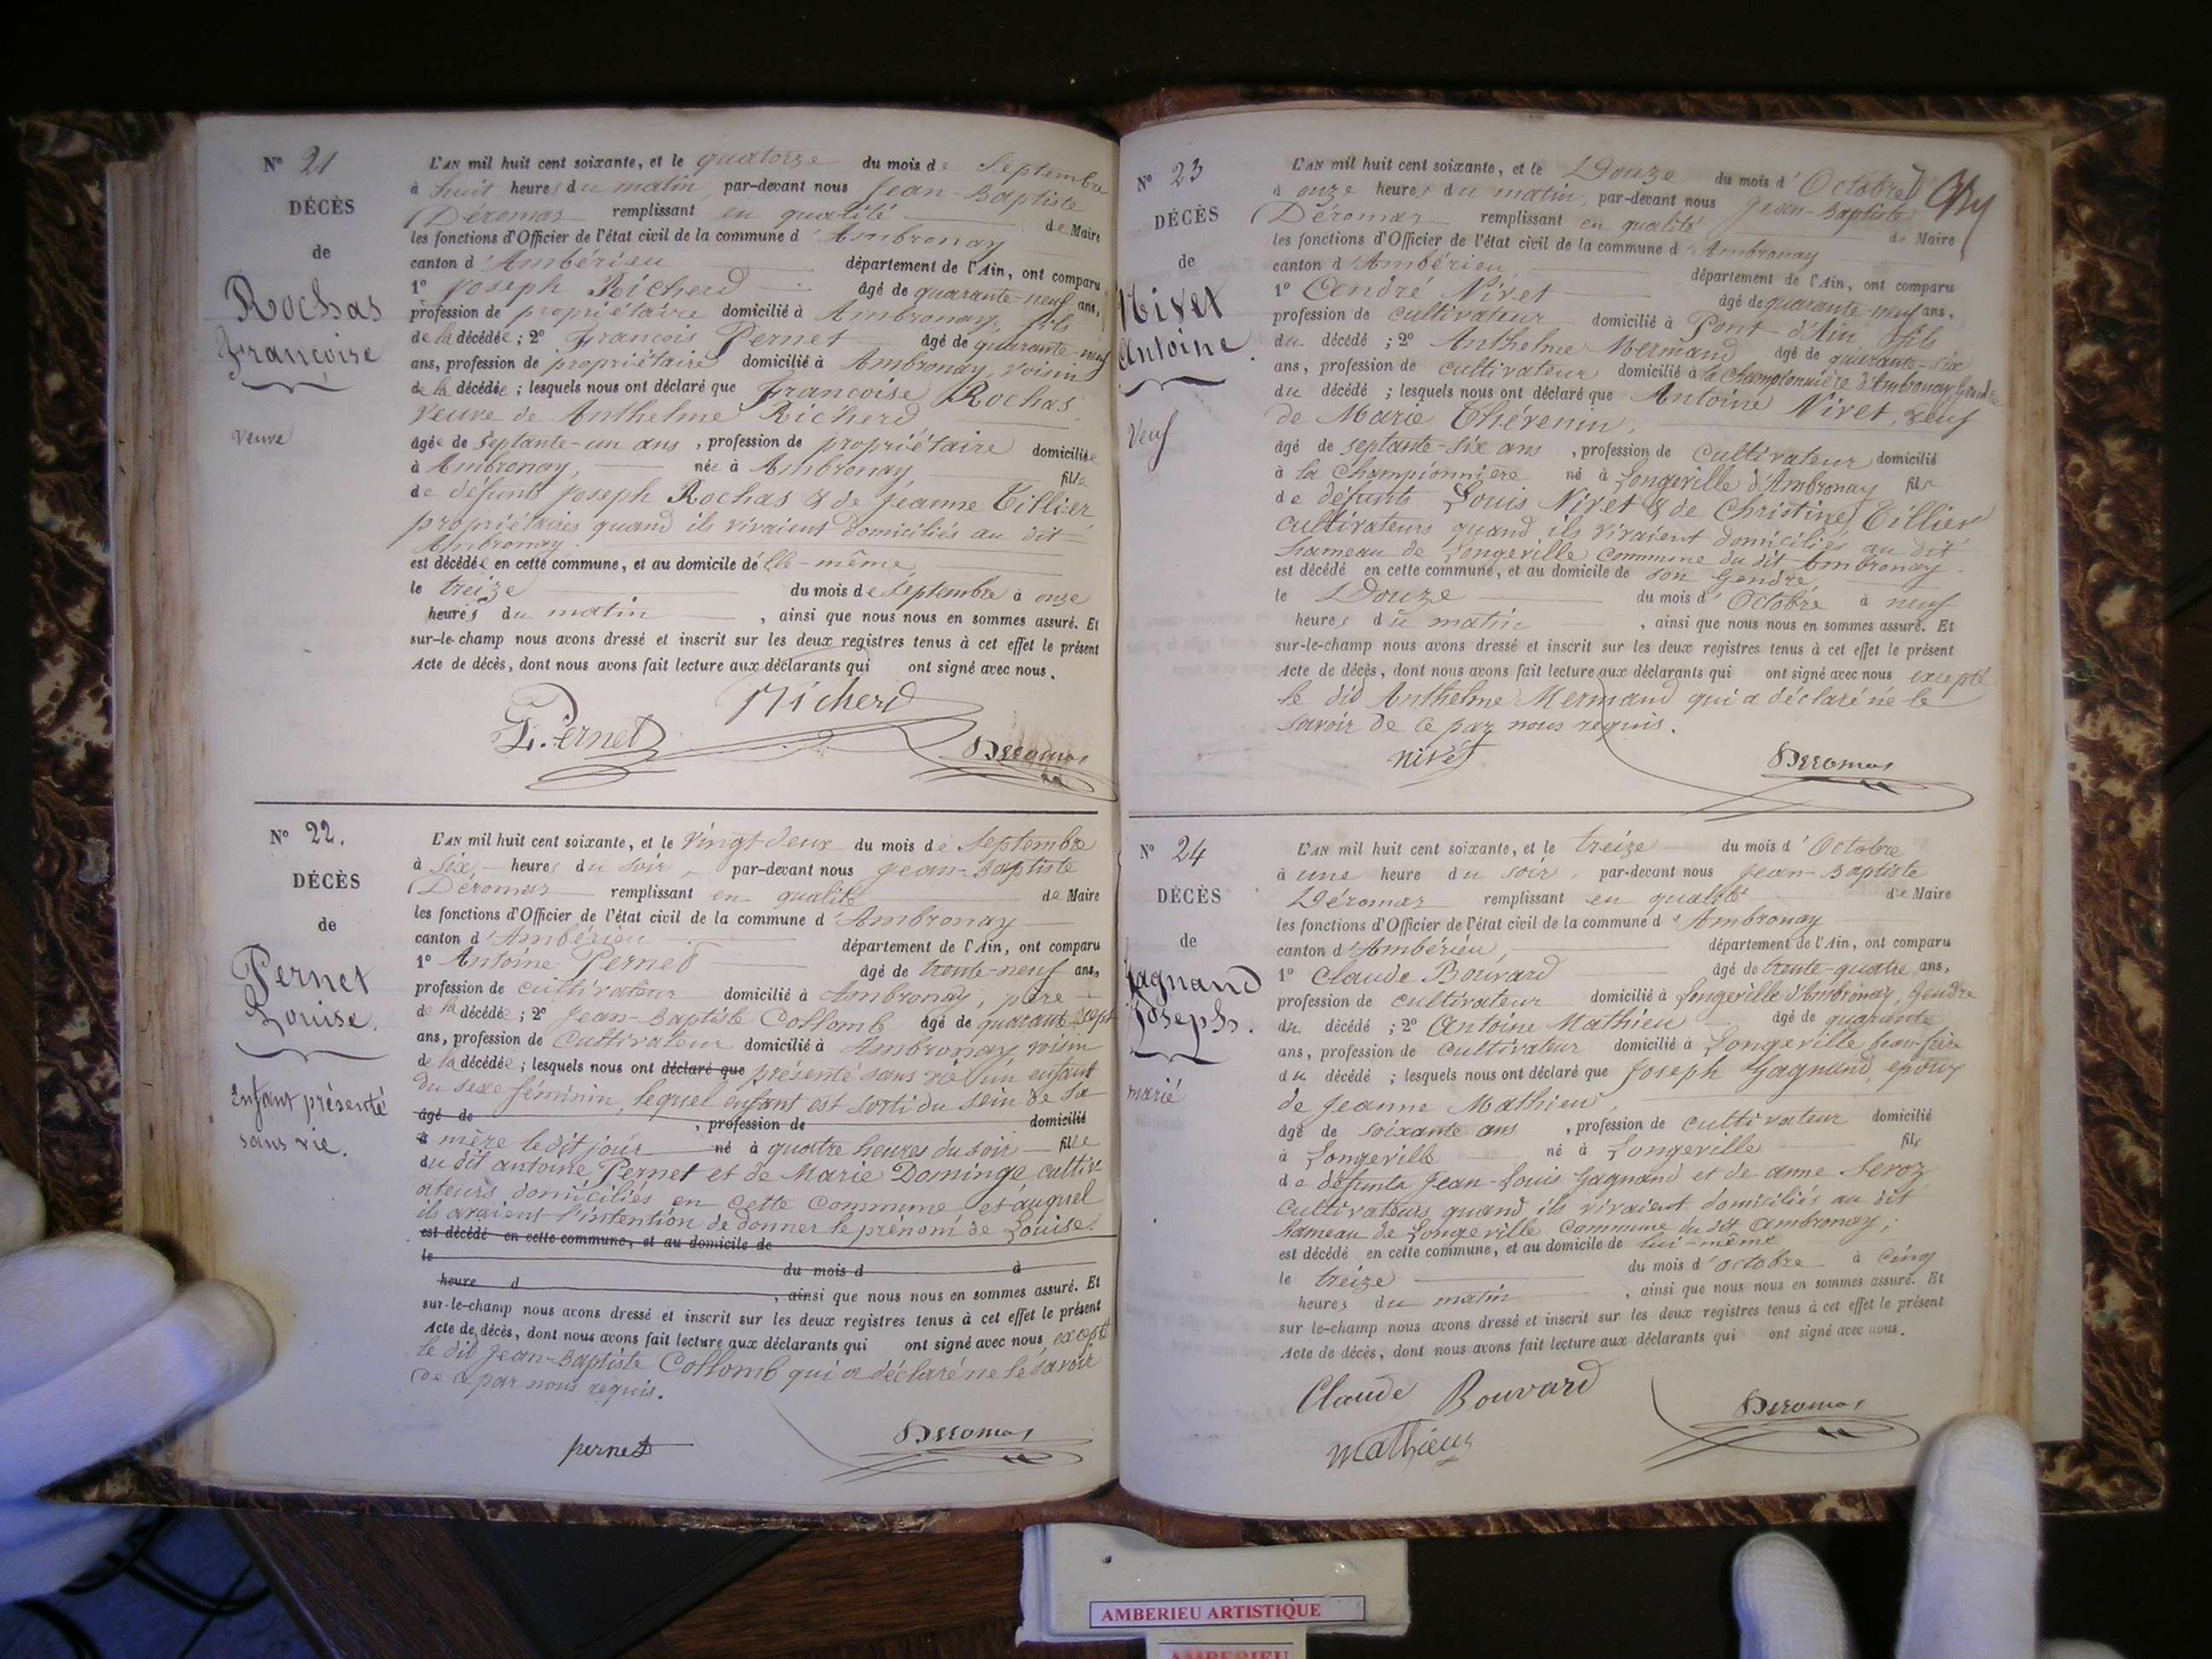 N° 21
DÉCÈS
de
Rochas
Françoise
veuve
L'AN mil huit cent soixante, et le quatorze du mois de Septembre
à huit heures du matin, par-devant nous Jean-Baptiste
Déromas remplissant en qualité de Maire
les fonctions d'Officier de l'état civil de la commune d'Ambronay
canton d'Ambérieu département de l'Ain, ont comparu
1° Joseph Richerd âgé de quarante-neuf ans,
profession de propriétaire domicilié à Ambronay, fils
de la décédée ; 2° François Pernet âgé de quarante-neuf
ans, profession de propriétaire domicilié à Ambronay, voisin
de la décédée ; lesquels nous ont déclaré que Françoise Rochas
veuve de Anthelme Richerd
âgée de septante-un ans, profession de propriétaire domiciliée
à Ambronay, née à Ambronay fille
de défunts Joseph Rochas & de Jeanne Tillier
propriétaires quand ils vivaient domiciliés au dit
Ambronay.
est décédée en cette commune, et au domicile d'elle-même,
le treize du mois de septembre à onze
heures du matin, ainsi que nous nous en sommes assuré. Et
sur-le-champ nous avons dressé et inscrit sur les deux registres tenus à cet effet le présent
Acte de décès, dont nous avons fait lecture aux déclarants qui ont signé avec nous.
Richerd
Pernet
Deromas
N° 22.
DÉCÈS
de
Pernet
Louise.
Enfant présenté
sans vie.
L'AN mil huit cent soixante, et le vingt deux du mois de Septembre
à six heures du soir, par-devant nous Jean-Baptiste
Déromas remplissant en qualité de Maire
les fonctions d'Officier de l'état civil de la commune d'Ambronay
canton d'Ambérieu département de l'Ain, ont comparu
1° Antoine Pernet âgé de trente-neuf ans,
profession de cultivateur domicilié à Ambronay, père
de la décédée ; 2° Jean-Baptiste Collomb âgé de quarante sept
ans, profession de Cultivateur domicilié à Ambronay, voisin
de la décédée ; lesquels nous ont déclaré que présenté sans vie un enfant
du sexe féminin, lequel enfant est sorti du sein de sa
âgé de , profession de domicilié
à mère le dit jour né à quatre heures du soir fille
du dit antoine Pernet et de Marie Dominge, cultiv
ateurs domiciliés en cette commune et auquel
ils avaient l'intention de donner le prénom de Louise.
est décédé en cette commune, et au domicile de
le du mois d à
heure d , ainsi que nous nous en sommes assuré. Et
sur-le-champ nous avons dressé et inscrit sur les deux registres tenus à cet effet le présent
Acte de décès, dont nous avons fait lecture aux déclarants qui ont signé avec nous, excepté
le dit Jean-Baptiste Collomb qui a déclaré ne le savoir
de ce par nous requis.
pernet
Deromas
N° 23
DÉCÈS
de
Nivet
Antoine.
Veuf
L'AN mil huit cent soixante, et le Douze du mois d'Octobre
à onze heures du matin, par-devant nous Jean-Baptiste
Déromas remplissant en qualité de Maire
les fonctions d'Officier de l'état civil de la commune d'Ambronay
canton d'Ambérieu, département de l'Ain, ont comparu
1° André Nivet âgé de quarante-neuf ans,
profession de cultivateur domicilié à Pont d'Ain fils
du décédé ; 2° Anthelme Mermand âgé de quarante-six
ans, profession de cultivateur domicilié à la Championnière d'Ambronay, gendre
du décédé ; lesquels nous ont déclaré que Antoine Nivet, veuf
de Marie Thévenin,
âgé de septante-six ans, profession de Cultivateur domicilié
à la Championnière né à Longeville d'Ambronay fils
de défunts Louis Nivet & de Christine Tillier
cultivateurs quand ils vivaient domiciliés au dit
hameau de Longeville commune du dit Ambronay.
est décédé en cette commune, et au domicile de son gendre,
le Douze du mois d'Octobre à neuf
heures du matin, ainsi que nous nous en sommes assuré. Et
sur-le-champ nous avons dressé et inscrit sur les deux registres tenus à cet effet le présent
Acte de décès, dont nous avons fait lecture aux déclarants qui ont signé avec nous excepté
le dit Anthelme Mermand qui a déclaré ne le
savoir de ce par nous requis.
nivet
Deromas
N° 24
DÉCÈS
de
Gagnand
Joseph.
marié
L'AN mil huit cent soixante, et le treize du mois d'Octobre
à une heure du soir, par-devant nous Jean-Baptiste
Déromas remplissant en qualité de Maire
les fonctions d'Officier de l'état civil de la commune d'Ambronay
canton d'Ambérieu, département de l'Ain, ont comparu
1° Claude Bouvard âgé de trente-quatre ans,
profession de cultivateur domicilié à Longeville d'Ambronay, gendre
du décédé ; 2° Antoine Mathieu âgé de quarante
ans, profession de Cultivateur domicilié à Longeville beau-frère
du décédé ; lesquels nous ont déclaré que Joseph Gagnand, époux
de Jeanne Mathieu,
âgé de soixante ans, profession de cultivateur domicilié
à Longeville né à Longeville fils
de défunts Jean-Louis Gagnand et de anne Seroz
Cultivateurs quand ils vivaient domiciliés au dit
hameau de Longeville commune du dit Ambronay ;
est décédé en cette commune, et au domicile de lui-même
le treize du mois d'octobre à cinq
heures du matin, ainsi que nous nous en sommes assuré. Et
sur le-champ nous avons dressé et inscrit sur les deux registres tenus à cet effet le présent
Acte de décès, dont nous avons fait lecture aux déclarants qui ont signé avec nous.
Claude Bouvard
Mathieu
Deromas
AMBERIEU ARTISTIQUE
AMBERIEU